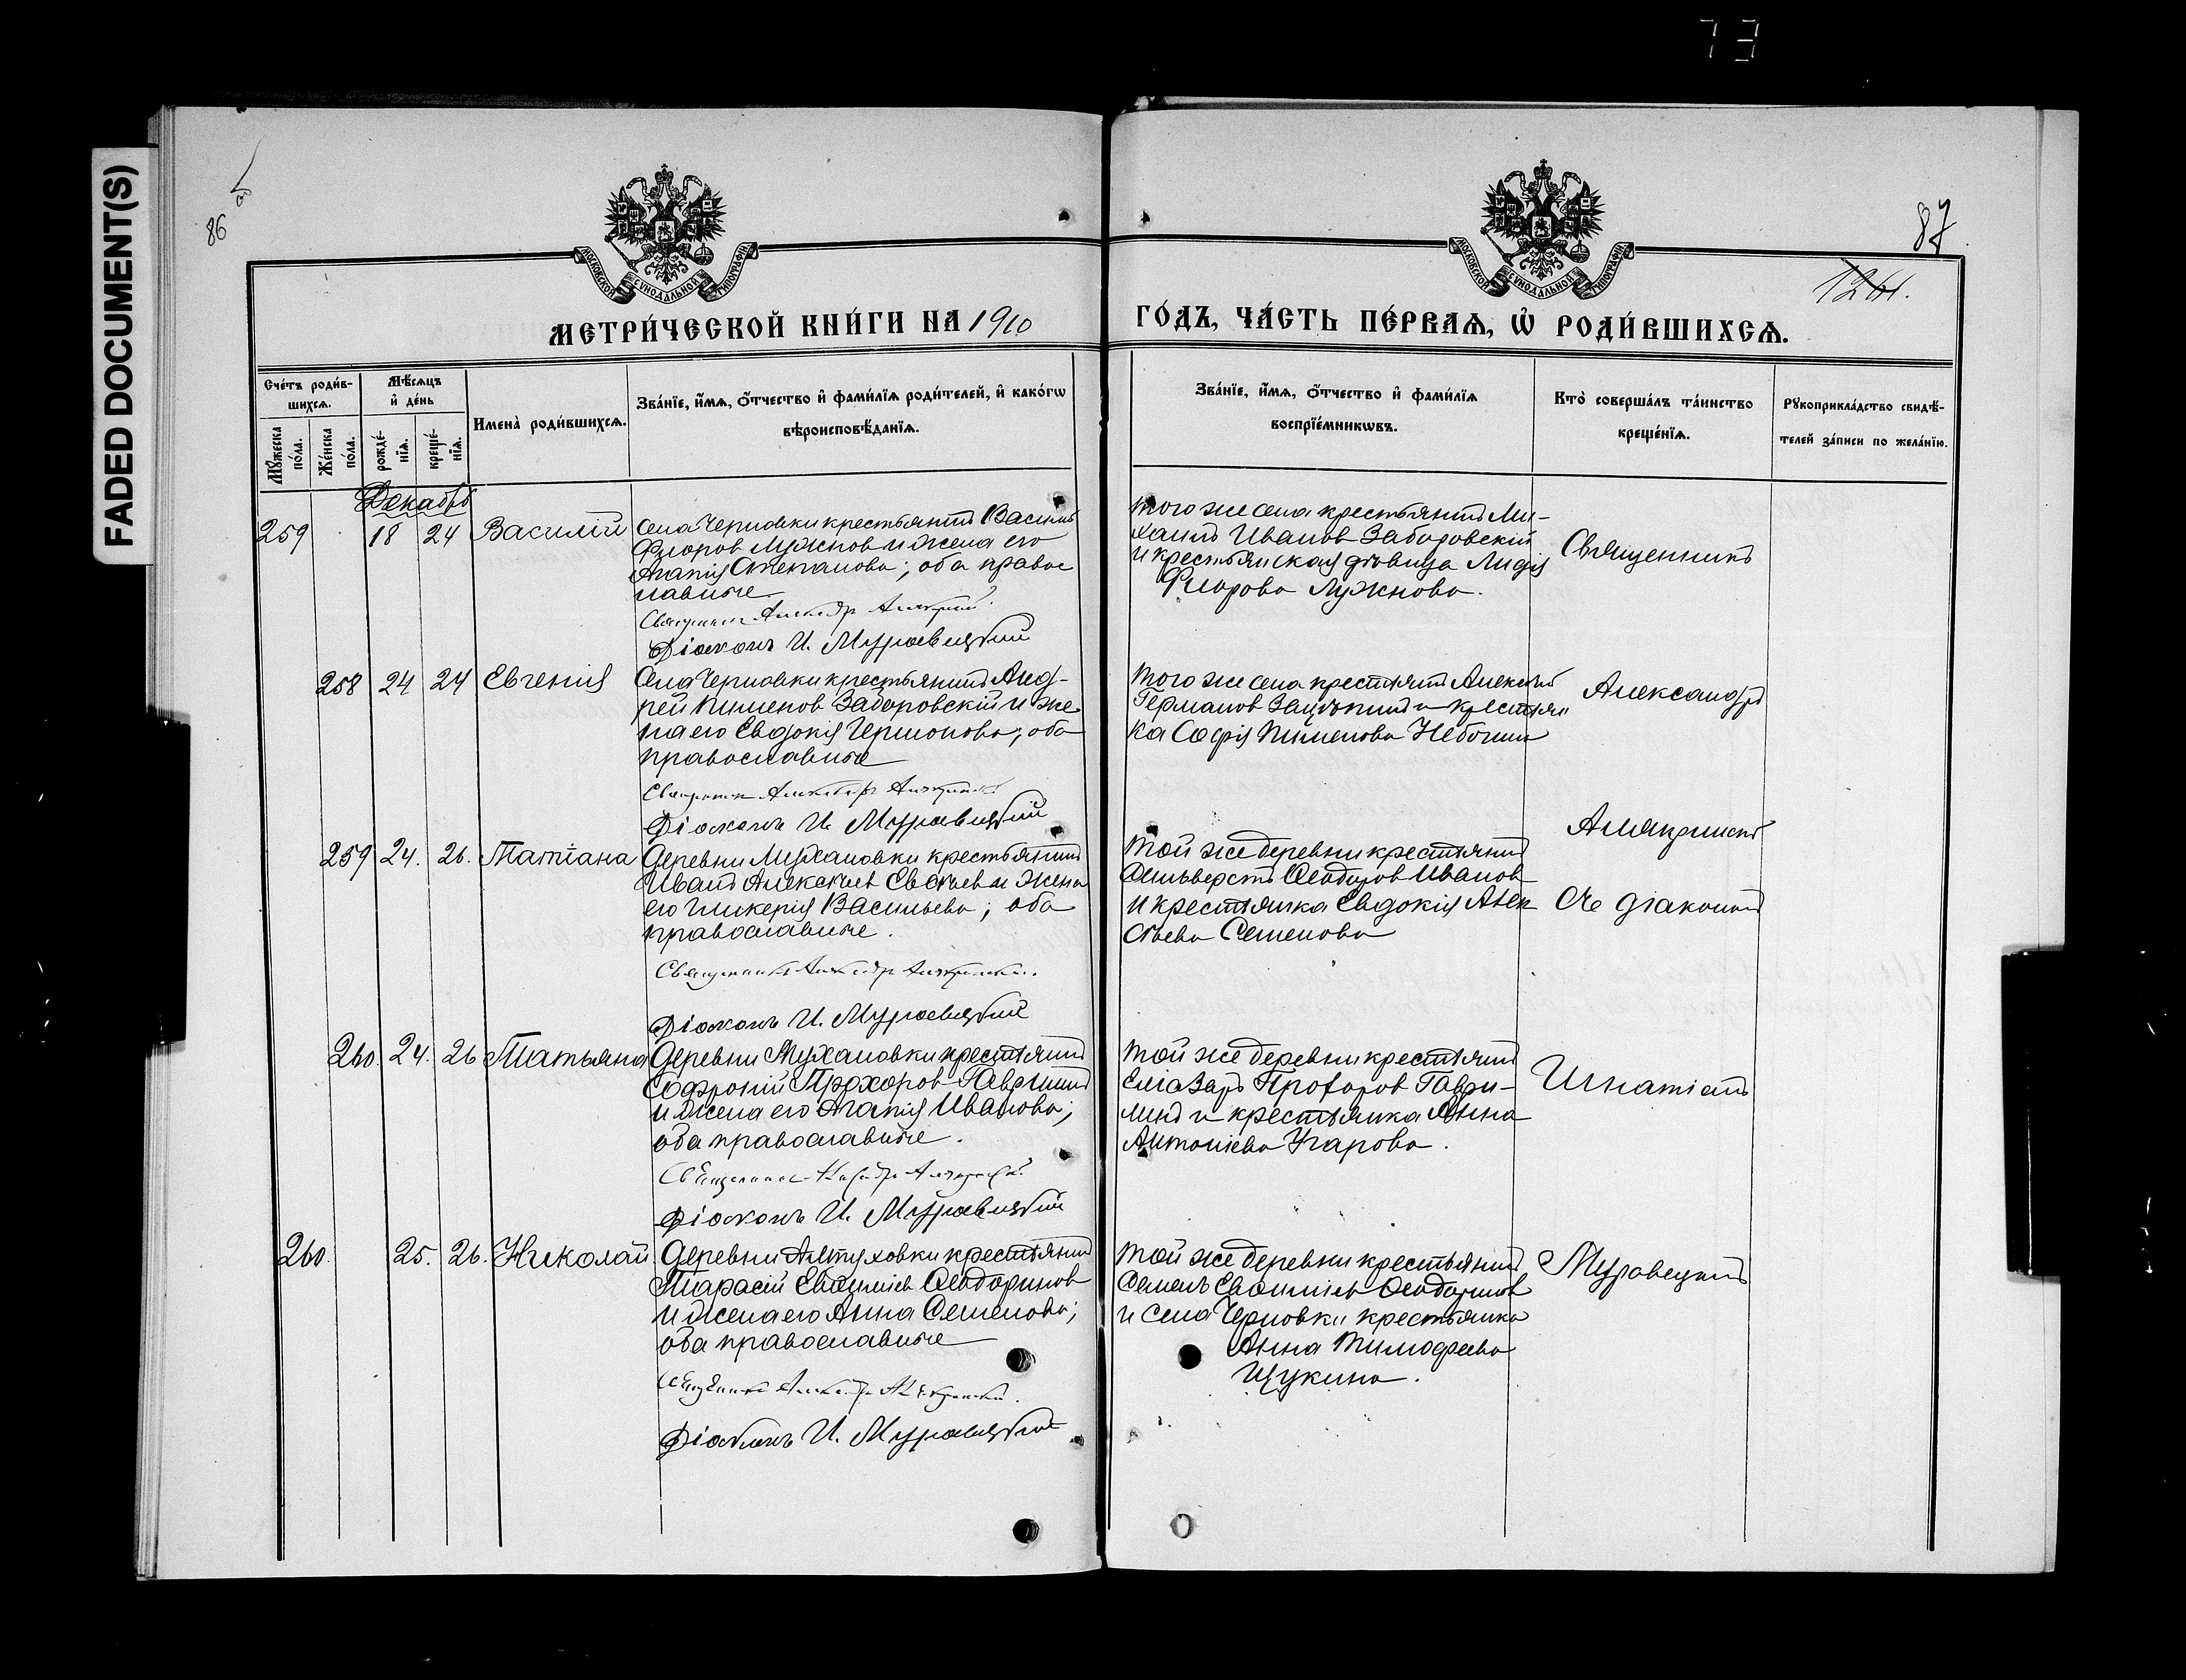 73
FADED DOCUMENT(S)
86
87
1261.
МОСКОВСКОЙ СѴНОДАЛЬНОЙ ТИПОГРАФІИ
МОСКОВСКОЙ СѴНОДАЛЬНОЙ ТИПОГРАФІИ
МЕТРИ́ЧЕСКОЙ КНИ́ГИ НА 1910
ГО́ДЪ, ЧА́СТЬ ПЕ́РВАѦ, Ѡ҆ РОДИ́ВШИХСѦ.
Сче́тъ роди́в-
шихсѧ.
Мѣ́сѧцъ
и҆ де́нь
Мꙋ́жеска
по́ла.
Же́нска
по́ла.
рожде́-
нїѧ.
креще́-
нїѧ.
Имена̀ роди́вшихсѧ.
Зва́нїе, и҆́мѧ, ѻ҆́тчество и҆ фами́лїѧ роди́телей, и҆ како́гѡ
вѣроисповѣ́данїѧ.
Зва́нїе, и҆́мѧ, ѻ҆́тчество и҆ фами́лїѧ
воспрїе́мникѡвъ.
Кто̀ соверша́лъ та́инство
креще́нїѧ.
Рꙋкоприкла́дство свидѣ́-
телей за́писи по жела́нїю.
Декабрь
259 18 24 Василій
Села Черновки крестьянинъ Василій
Флоров Лужнов и жена его
Агапія Степанова; оба правос
лавные
Священникъ Александръ Алякринскій.
Діаконъ И. Муравецкий
Того же села крестьянинъ Ми-
хаилъ Иванов Заборовскій
и крестьянская дѣвица Лидія
Флорова Лужнова.
Священникъ
258 24 24 Евгенія
Села Черновки крестьянинъ Анд-
рей Пименов Заборовскій и же-
на его Евдокія; оба
православные
Священникъ Александръ Алякринскій
Діаконъ И. Муравецкий
Того же села крестьянинъ Алексѣй
Германов и крестьян
ка Софія Пименова
Александръ
Алякринскій
259 24. 26. Татіана
Деревни Мухановки крестьянинъ
Иванъ Алексѣев Евсѣев и жена
его Гликерія Васильева; оба
православные.
Священникъ Александръ Алякринскій.
Діаконъ И. Муравецкий
Той же деревни крестьянинъ
Сильверстъ Ѳеодоров Иванов
и крестьянка Евдокія Алек
сѣева Семенова
Съ діакономъ
260. 24. 26 Татьяна
Деревни Мухановки крестьянинъ
Софроній Прохоров Гаврилинъ
и жена его Агапія Иванова;
оба православные.
Священникъ Александръ Алякринскій
Діаконъ И. Муравецкий
Той же деревни крестьянинъ
Елiазаръ Прохоров Гаври-
линъ и крестьянка Анна
Антоніева Угарова.
Игнатіемъ
260. 25. 26. Николай
Деревни Алтуховки крестьянинъ
Тарасій Евѳиміев Ѳеодоринов
и жена его Анна Семенова;
оба православные
Священникъ Александръ Алякринскій.
Діаконъ И. Муравецкий
Той же деревни крестьянинъ
Семенъ Евѳиміев Ѳеодоринов
и села Черновки крестьянка
Анна Тимофеева
Щукина.
Муравецкимъ